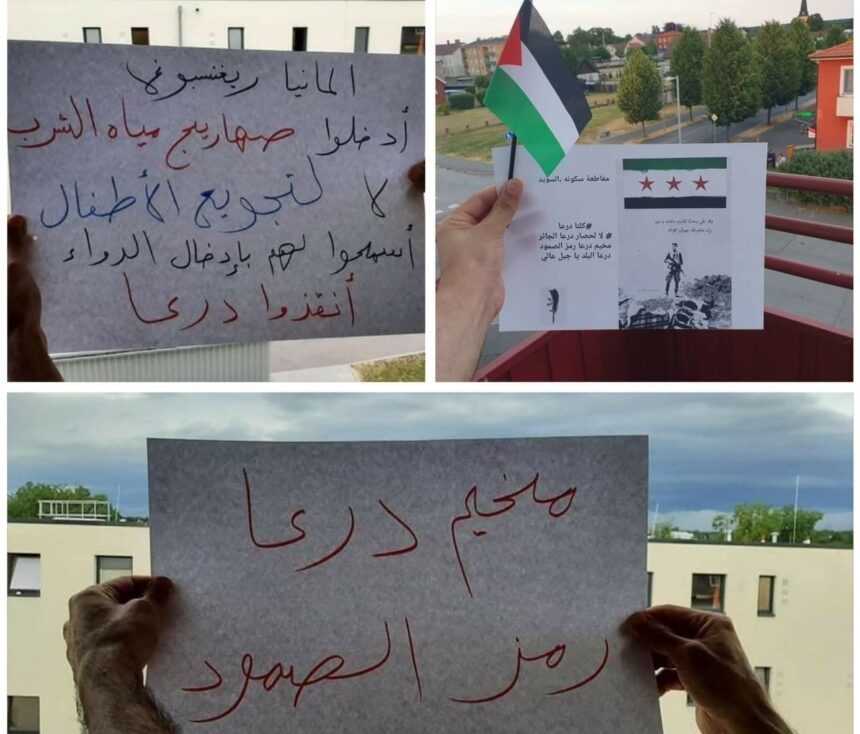 المانيا ريغنسبورغ
أدخلوا صهاريج مياه الشرب
لا لتجويع الأطفال
أسمحوا لهم بإدخال الدواء
أنقذوا درعا
مقاطعة سكونه ،السويد
#كلنا درعا
# لا لحصار درعا الجائر
مخيم درعا رمز الصمود
درعا البلد يا جبل عالي
مخيم درعا
رمز الصمود